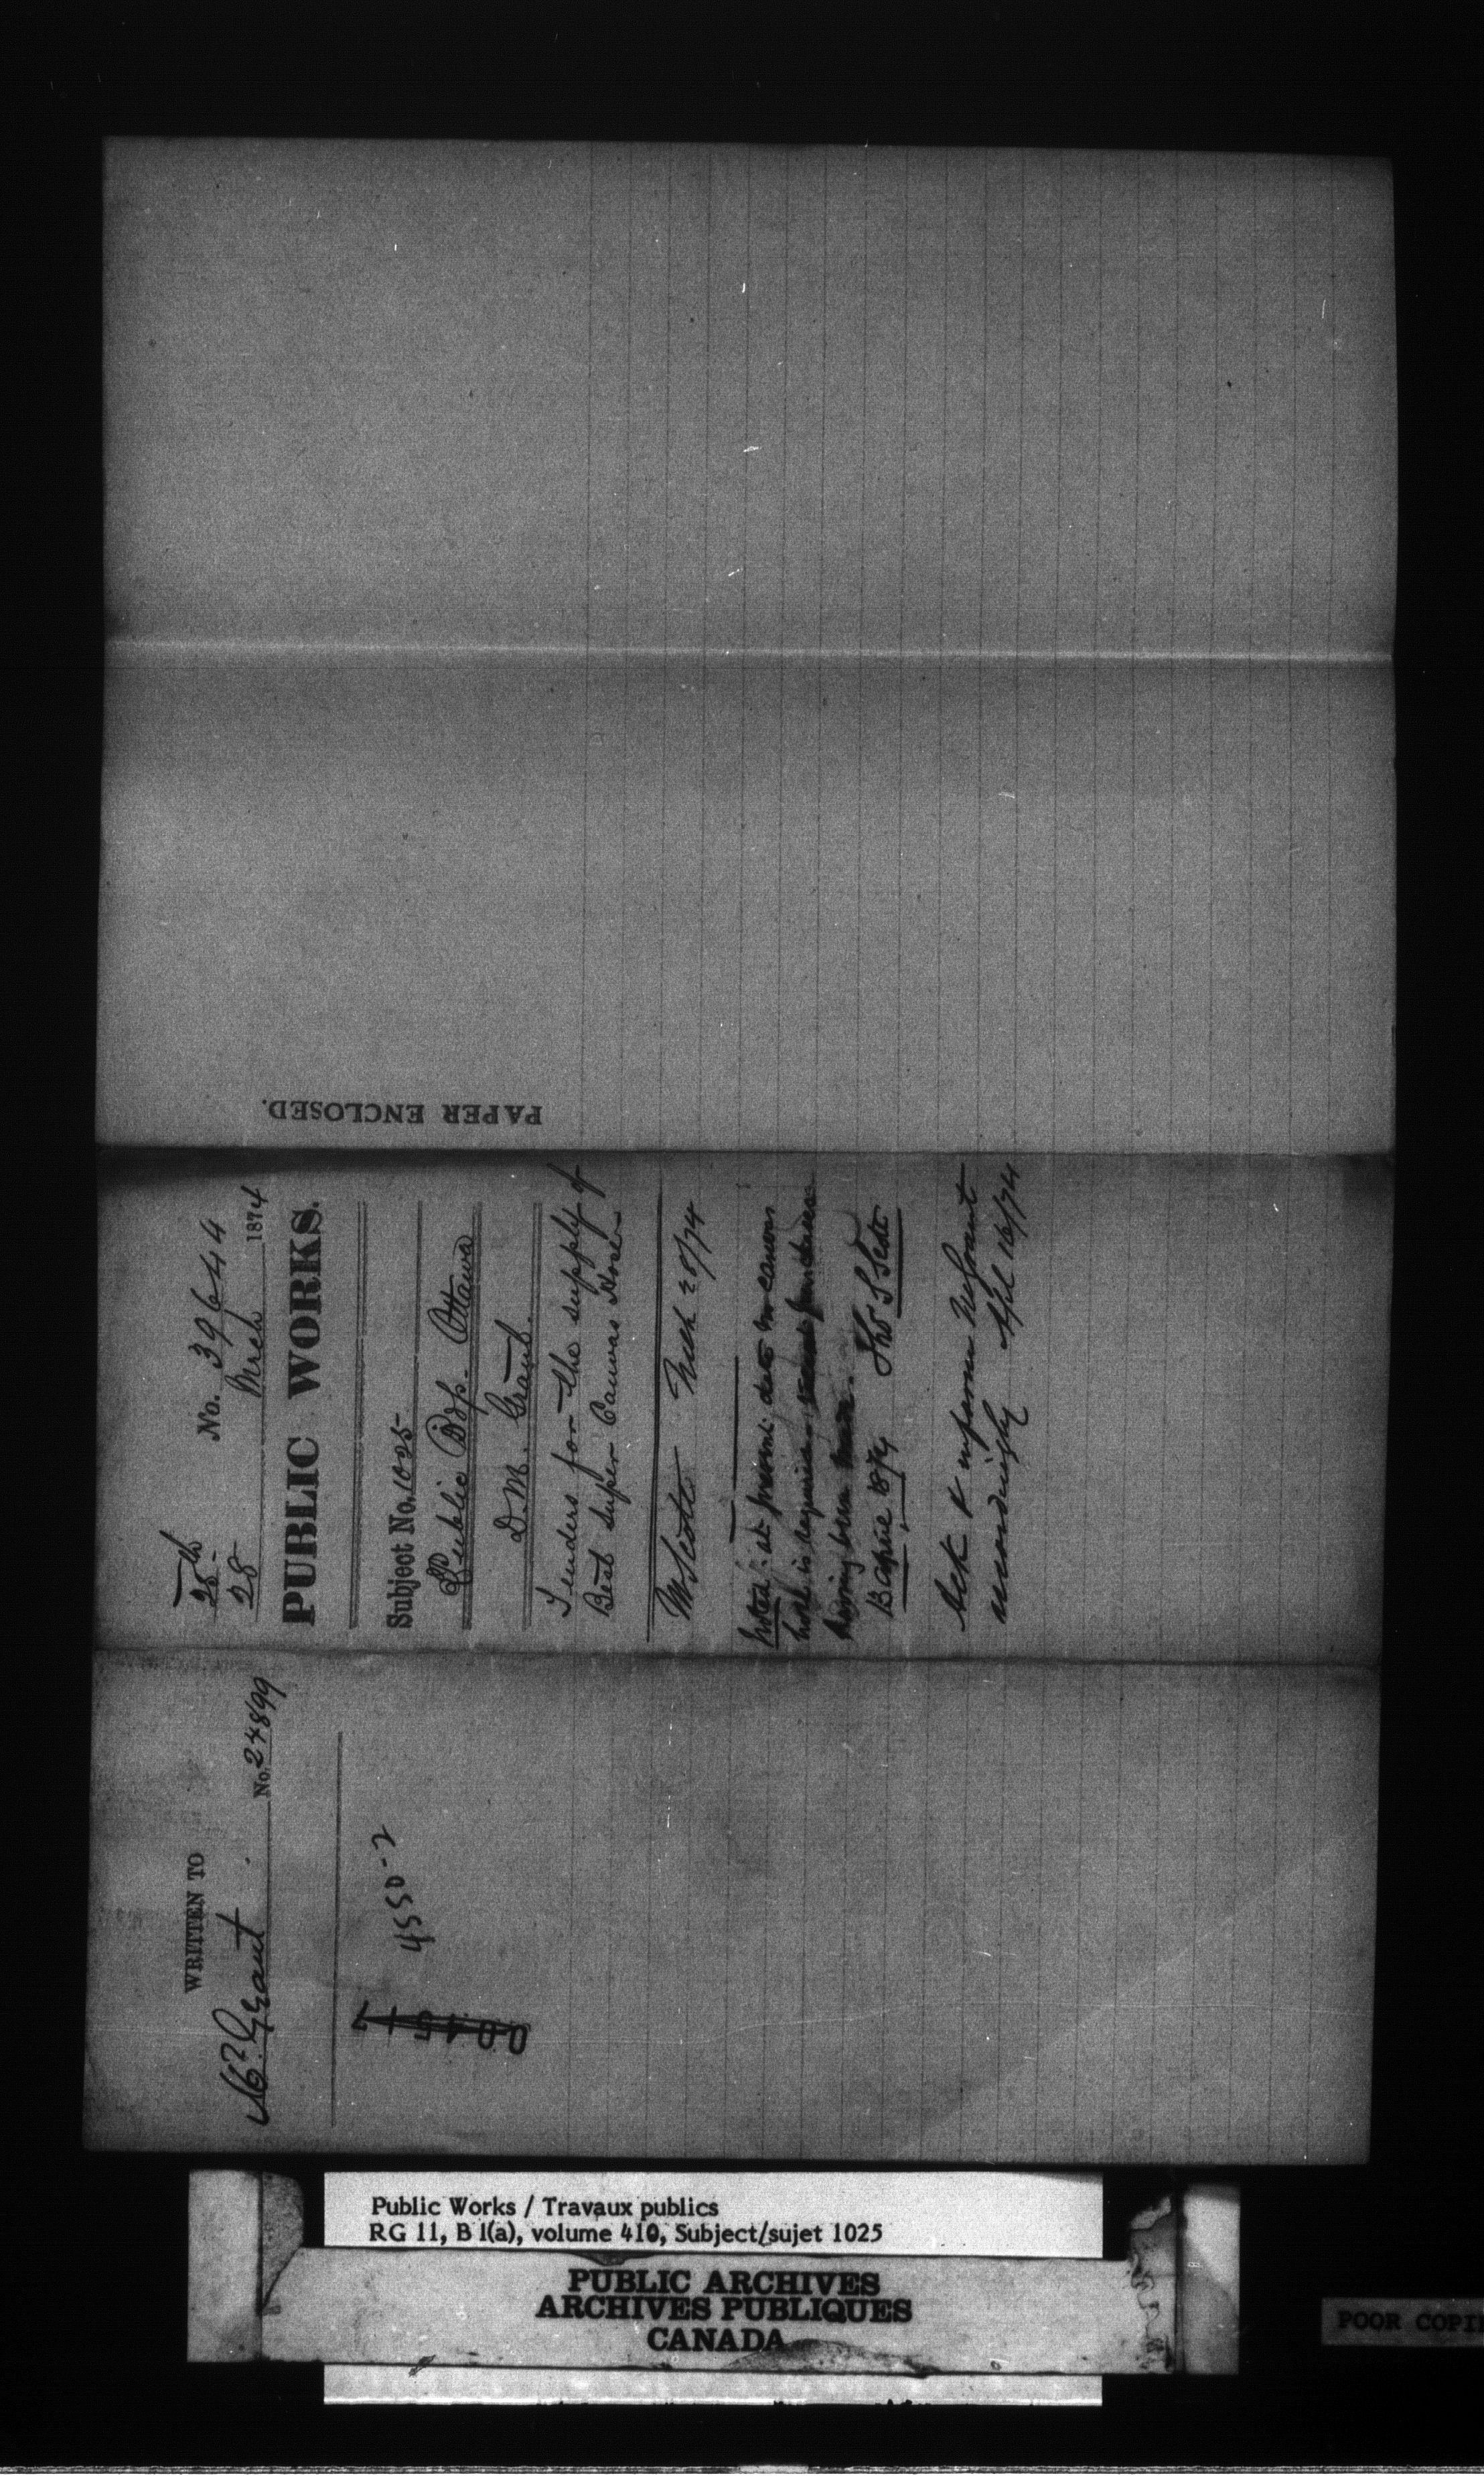 PAPER ENCLOSED.
25th No. 39644
28 March 1874
PUBLIC WORKS.
Subject No. 1025
Public Bdgs. Ottawa
D. M. Grant.
Tenders for the supply of
Best Super Canvas Hose
Mr Scott Mch 28/74
Noted: at present date no canvas
hose is required
having been made.
13 April 1874 Thos S Scott
Ack & inform Mr Grant
accordingly Apl 16/74
WRITTEN TO
Mr Grant. No. 24899
4550-2
Public Works / Travaux publics
RG 11, B 1(a), volume 410, Subject/sujet 1025
PUBLIC ARCHIVES
ARCHIVES PUBLIQUES
CANADA
POOR COPI